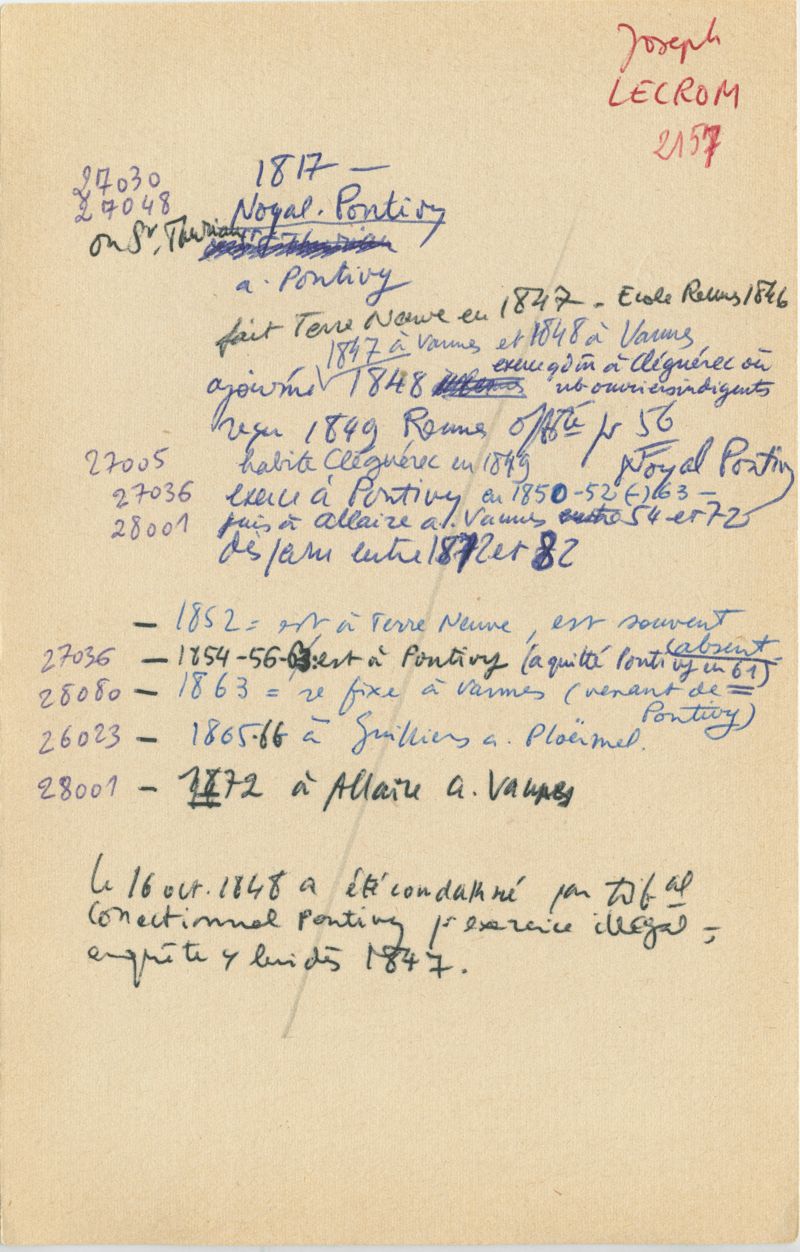 Joseph
LECROM
2157
27030 1817 —
27048 Noyal-Pontivy
ou St Thuriau
a. Pontivy
fait Terre Neuve en 1847 - Ecole Rennes 1846
1847 à Vannes et 1848 à Vannes
ajourné 1848 exerce qd m à Cléguérec où
nb ouvriers indigents
reçu 1849 Rennes offté pr 56
27005 habite Cléguérec en 1849 Noyal Pontivy
27036 exerce à Pontivy en 1850-52 (-) 63 -
28001 puis à Allaire a. Vannes entre 54 et 72
disparu entre 1872 et 82
— 1852 = est à Terre Neuve, est souvent absent
27036 — 1854-56-63: est à Pontivy (a quitté Pontivy en 61)
28080 — 1863 = se fixe à Vannes (venant de Pontivy)
26023 — 1865-66 à Guilliers a. Ploërmel.
28001 — 1872 à Allaire a. Vannes
le 16 oct. 1848 a été condamné par trib al
correctionnel Pontivy pr exercice illégal =
enquête s/ lui dès 1847.